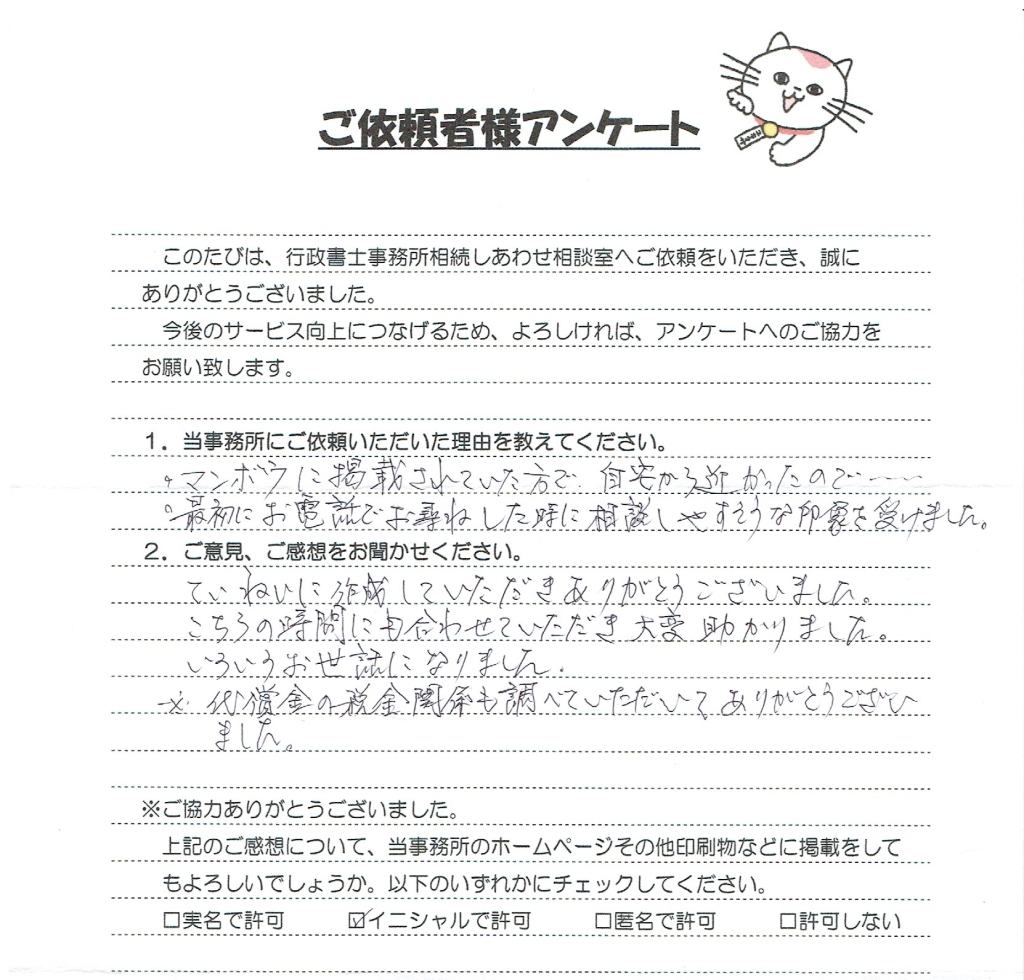 ご依頼者様アンケート
このたびは、行政書士事務所相続しあわせ相談室へご依頼をいただき、誠に
ありがとうございました。
今後のサービス向上につなげるため、よろしければ、アンケートへのご協力を
お願い致します。
1．当事務所にご依頼いただいた理由を教えてください。
。マンボウに掲載されていた方で、自宅から近かったので……
。最初にお電話でお尋ねした時に相談しやすそうな印象を受けました。
2．ご意見、ご感想をお聞かせください。
ていねいに作成していただきありがとうございました。
こちらの時間にも合わせていただき大変助かりました。
いろいろお世話になりました。
※代償金の税金関係も調べていただいてありがとうござい
ました。
※ご協力ありがとうございました。
上記のご感想について、当事務所のホームページその他印刷物などに掲載をして
もよろしいでしょうか。以下のいずれかにチェックしてください。
□実名で許可 ☑イニシャルで許可 □匿名で許可 □許可しない